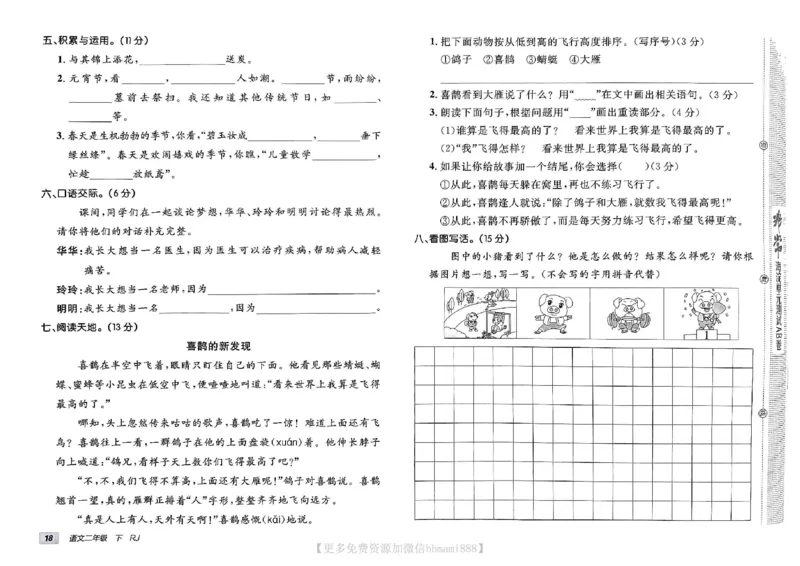 五、积累与运用。(11分)
1. 与其锦上添花,____________送炭。
2. 元宵节,看________,________人如潮。________节,雨纷纷,
________墓前去祭扫。我还知道其他传统节日,如________、
________等。
3. 春天是生机勃勃的季节,你看,“碧玉妆成____________,________垂下
绿丝绦”。春天是欢闹嬉戏的季节,你瞧,“儿童散学____________,
忙趁________放纸鸢”。
六、口语交际。(6分)
课间,同学们在一起谈论梦想,华华、玲玲和明明讨论得最热烈。
请你将他们的对话补充完整。
华华:我长大想当一名医生,因为医生可以治疗疾病,帮助病人减轻
痛苦。
玲玲:我长大想当一名老师,因为________________________。
明明:我长大想当一名____________,因为____________________。
七、阅读天地。(13分)
喜鹊的新发现
喜鹊在半空中飞着,眼睛只盯住自己的下面。他看见那些蜻蜓、蝴
蝶、蜜蜂等小昆虫在低空中飞,便喳喳地叫道:“看来世界上我算是飞得
最高的了。”
哪知,头上忽然传来咕咕的歌声,喜鹊吃了一惊!难道上面还有飞
鸟?喜鹊往上一看,一群鸽子在他的上面盘旋(xuán)着。他伸长脖子
向上喊道:“鸽兄,看样子天上数你们飞得最高了吧?”
“不,不,我们飞得不算高,上面还有大雁呢!”鸽子对喜鹊说。喜鹊
翘首一望,真的,雁群正排着“人”字形,整整齐齐地飞向远方。
“真是人上有人,天外有天啊!”喜鹊感慨(kǎi)地说。
18 语文二年级 下 RJ
1. 把下面动物按从低到高的飞行高度排序。(写序号)(3分)
①鸽子 ②喜鹊 ③蜻蜓 ④大雁
2. 喜鹊看到大雁说了什么?用“____”在文中画出相关语句。(3分)
3. 朗读下面句子,根据问题用“____”画出重读部分。(4分)
(1)谁算是飞得最高的了? 看来世界上我算是飞得最高的了。
(2)“我”飞得怎样? 看来世界上我算是飞得最高的了。
4. 如果让你给故事加一个结尾,你会选择( )(3分)
①从此,喜鹊每天躲在窝里,再也不练习飞行了。
②从此,喜鹊逢人就说:“除了鸽子和大雁,就数我飞得最高啦!”
③从此,喜鹊不再骄傲了,而是每天努力练习飞行,希望飞得更高。
八、看图写话。(15分)
图中的小猪看到了什么?他是怎么做的?结果怎么样呢?请你根
据图片想一想,写一写。(不会写的字用拼音代替)
1
【更多免费资源加微信bbmami888】